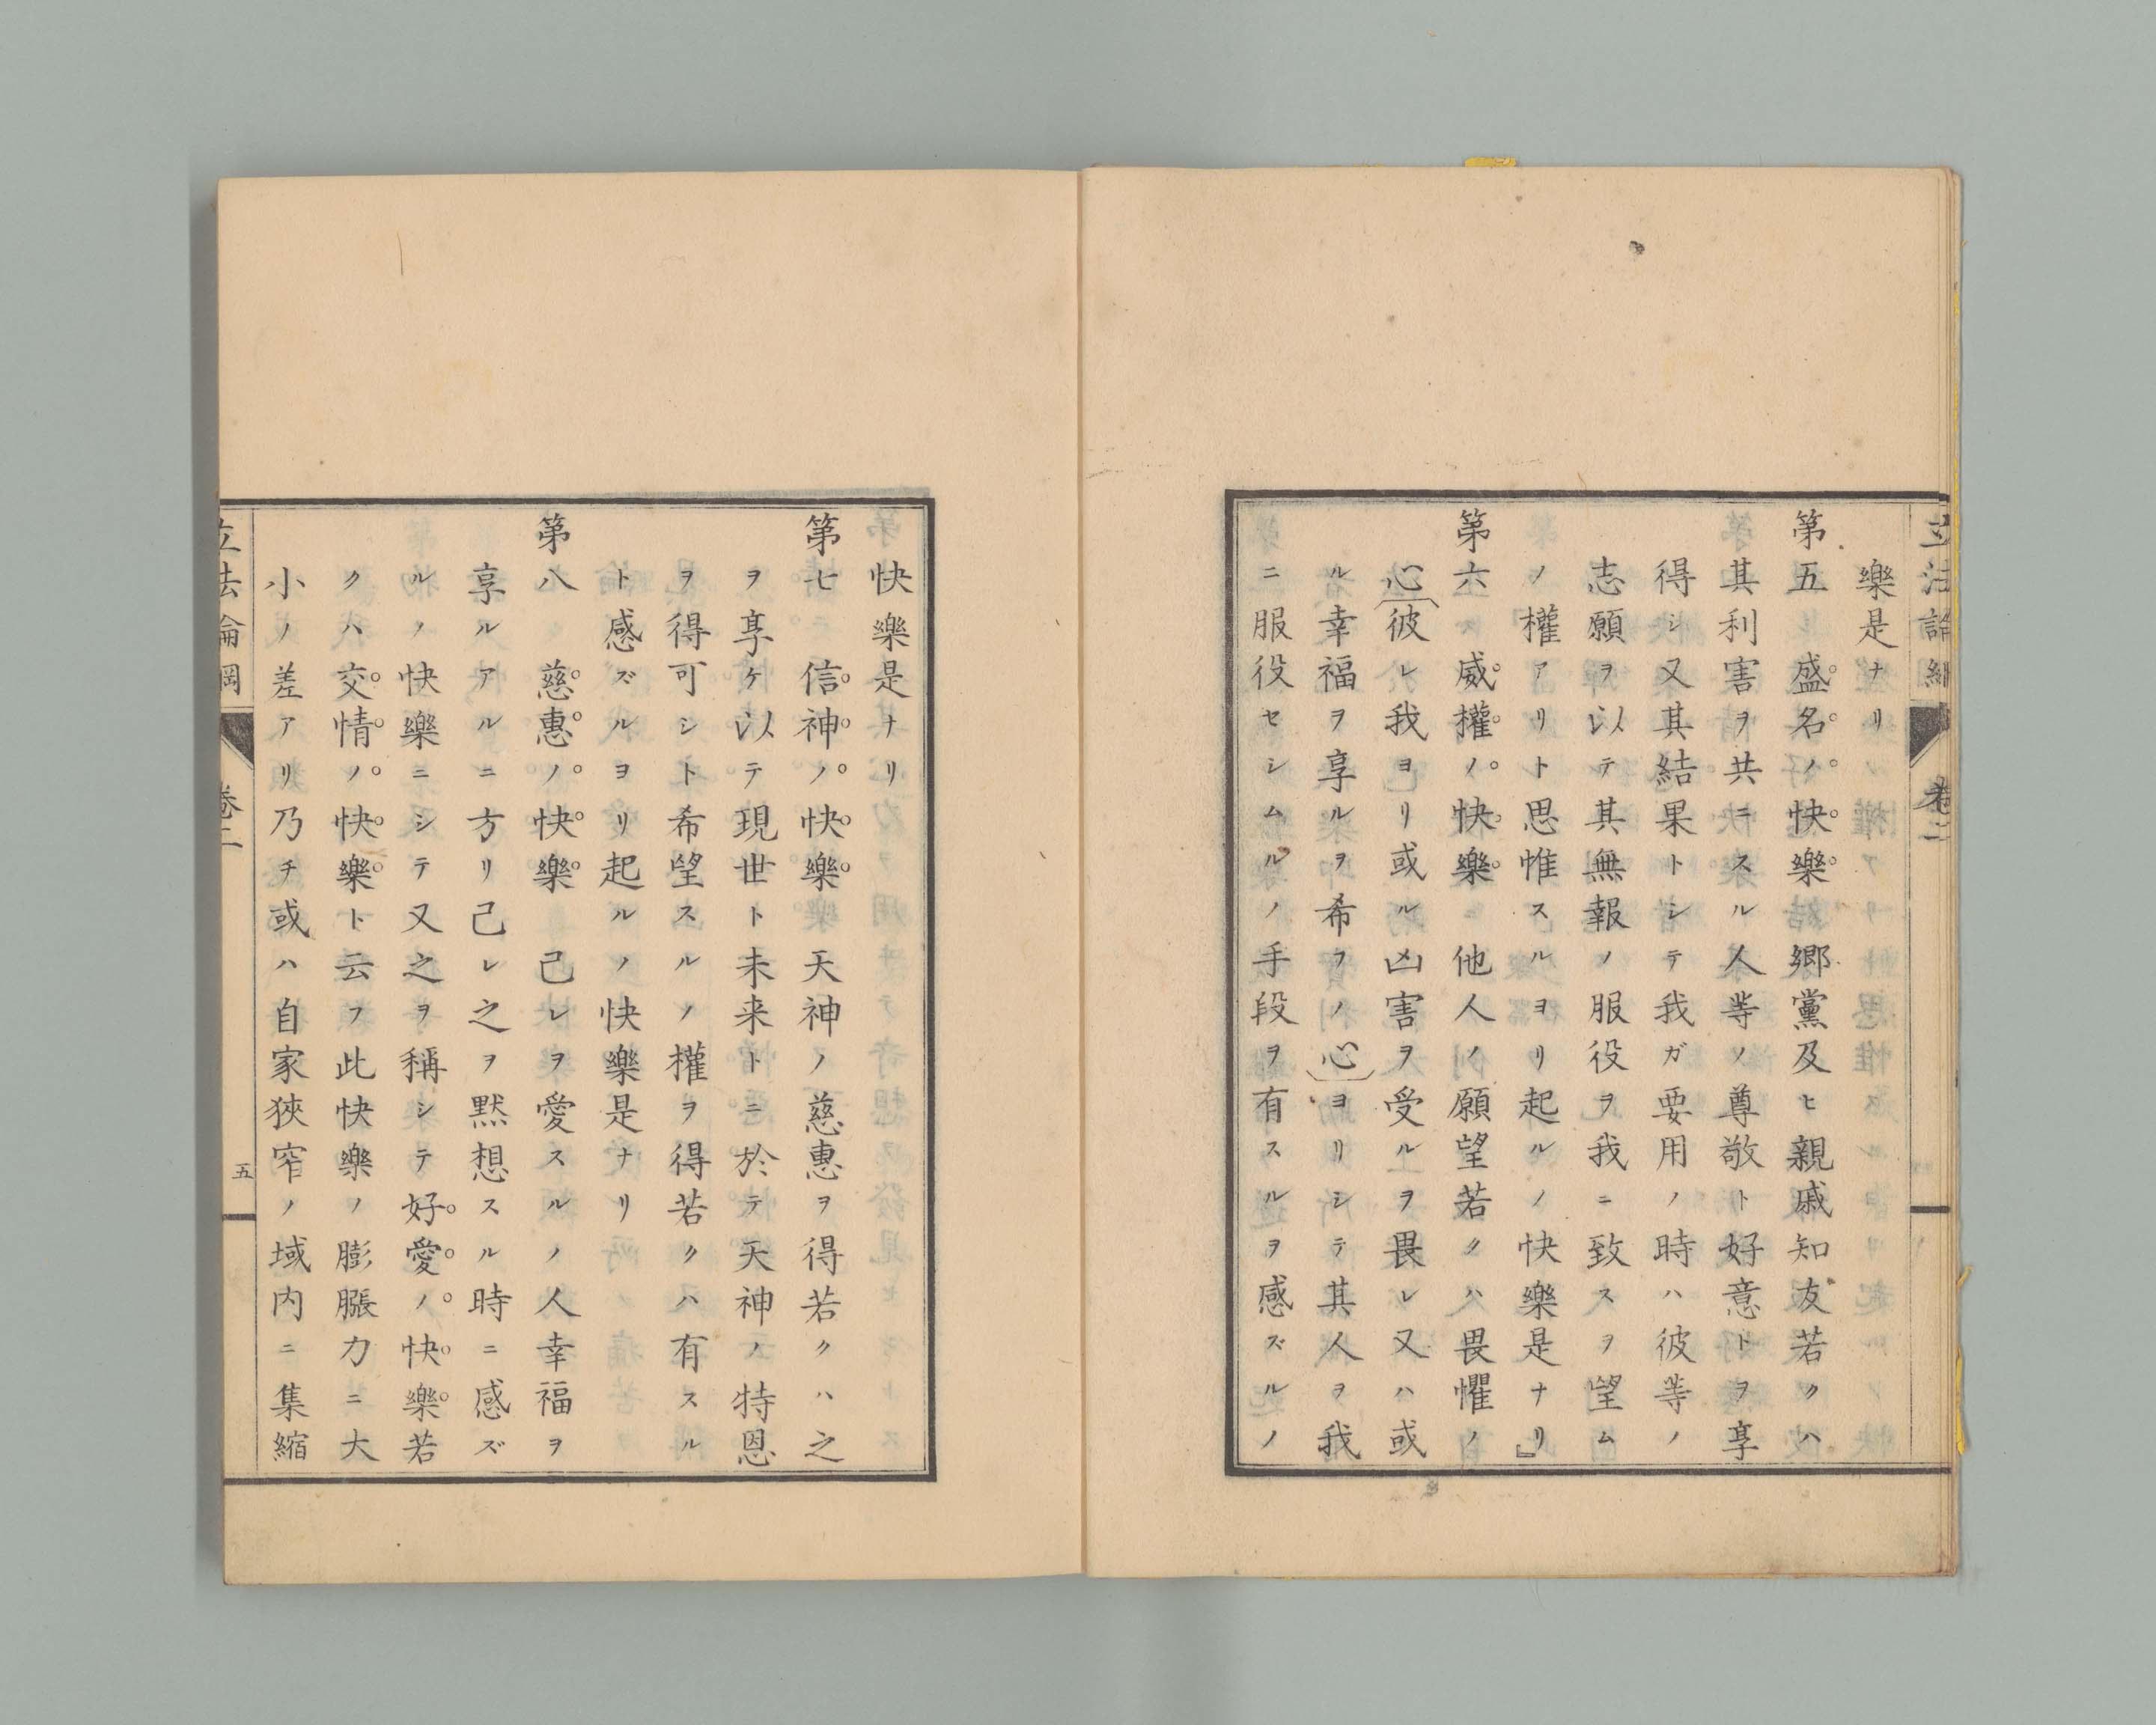 立法論綱
卷二
樂是ナリ
第五 盛名ノ快樂 郷黨及ヒ親戚知友若クハ
其利害ヲ共ニスル人等ノ尊敬ト好意トヲ享
得シ又其結果トシテ我ガ要用ノ時ハ彼等ノ
志願ヲ以テ其無報ノ服役ヲ我ニ致スヲ望ム
ノ權アリト思惟スルヨリ起ルノ快樂是ナリ」
第六 威權ノ快樂 他人ノ願望若クハ畏懼ノ
心〔彼レ我ヨリ或ル凶害ヲ受ルヲ畏レ又ハ或
ル幸福ヲ享ルヲ希フノ心〕ヨリシテ其人ヲ我
ニ服役セシムルノ手段ヲ有スルヲ感ズルノ
快樂是ナリ
第七 信神ノ快樂 天神ノ慈惠ヲ得若クハ之
ヲ享ケ以テ現世ト未来トニ於テ天神ノ特恩
ヲ得可シト希望スルノ權ヲ得若クハ有スル
ト感ズルヨリ起ルノ快樂是ナリ
第八 慈惠ノ快樂 己レヲ愛スルノ人幸福ヲ
享ルアルニ方リ己レ之ヲ默想スル時ニ感ズ
ルノ快樂ニシテ又之ヲ稱シテ好愛ノ快樂若
クハ交情ノ快樂ト云フ此快樂ノ膨脹力ニ大
小ノ差アリ乃チ或ハ自家狹窄ノ域内ニ集縮
立法論綱
卷二
五